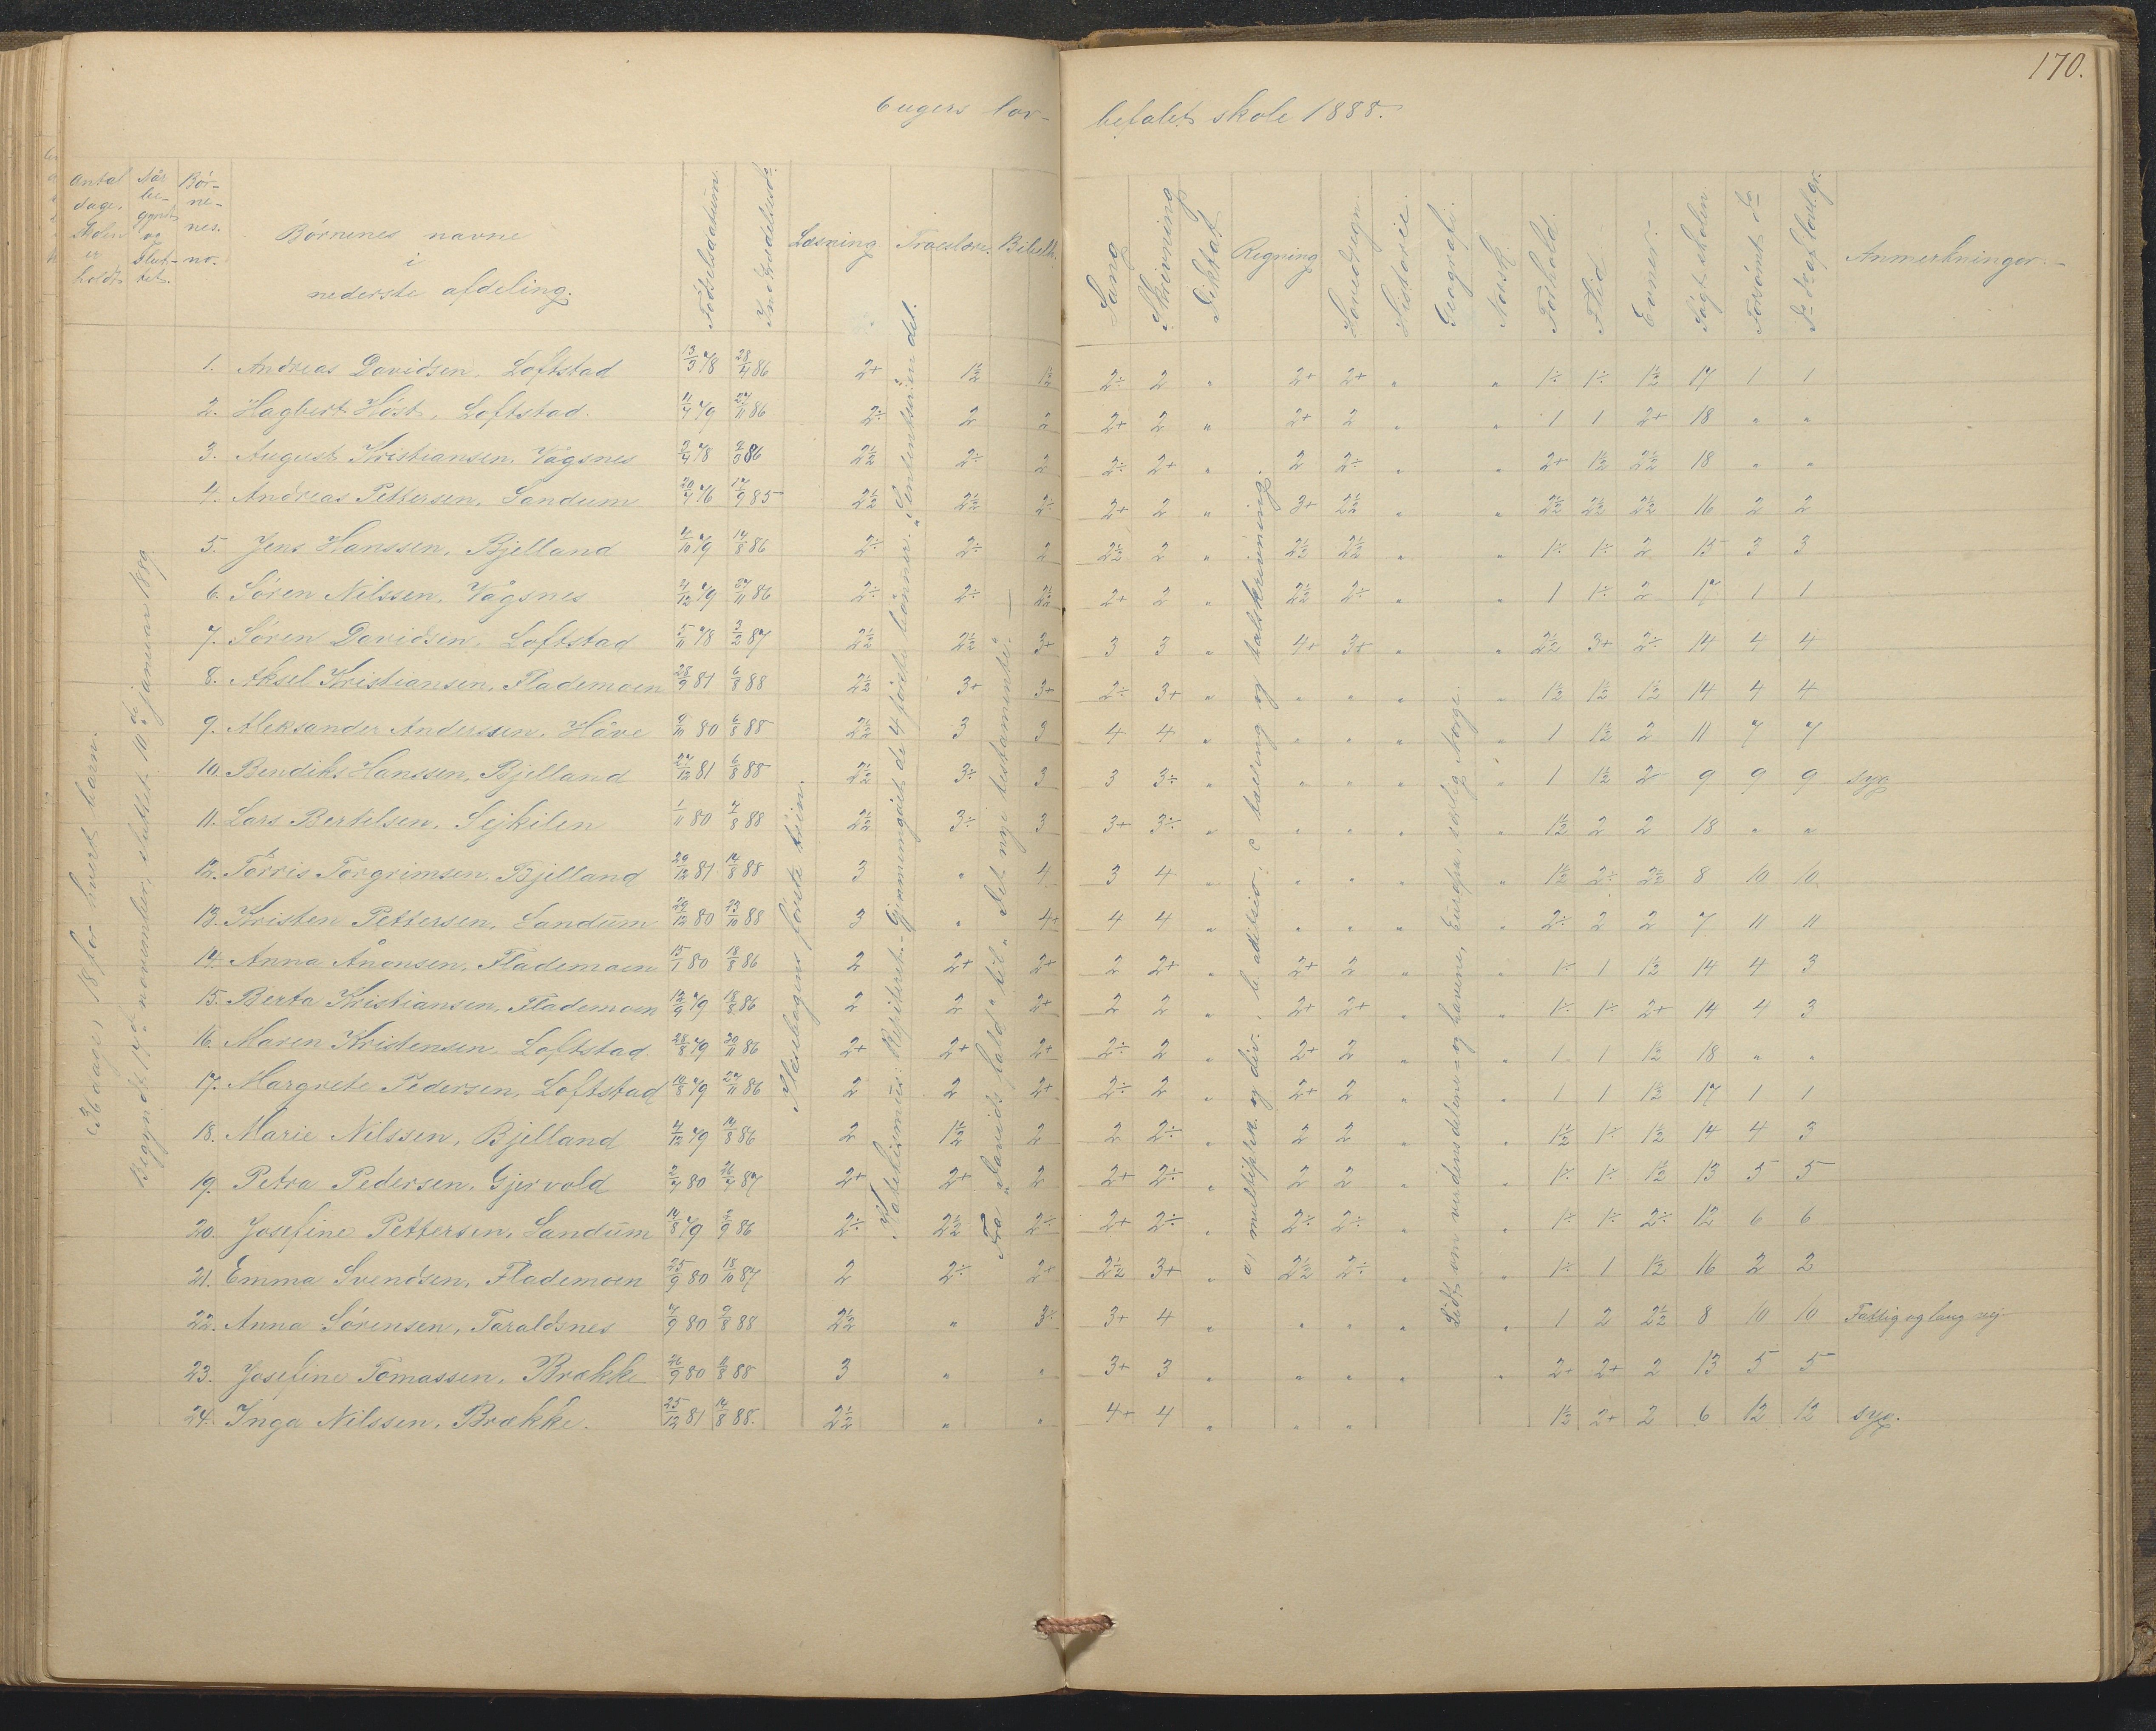 170.
6 ugers lov-
befalet skole 1888.
Antal dage, skolen er holdt
Når be-gyndt og slut-tet.
Bör-ne-nes. no.
Börnenes navne
i
nederste afdeling.
Födselsdatum
Læsning
Troeslære.
Bibelh.
Sang
Skrivning
Diktat
Regning
Hovedregn.
Historie.
Geografi.
Norsk.
Forhold.
Flid
Evner.
Sögt skolen
Forsömt do
do do af lovl. gr.
Anmerkninger.
36 dage, 18 for hvert barn.
Begyndt 17de november, sluttet 10de januar 1889
Læsebogens förste trin.
Katekismus: Repiteret. Gjennemgået de 4 förste bönner. "Sententserien del.
Fra "Davids fald" til "Det nye testamente".
a, multiplka. og div., b. aditsio: c tælling og talskrivning.
Lidt om verdensdelene og havene, Europa, særlig Norge.
1. Andreas Davidsen, Loftstad 13/3 78 28/4 86 2+ 1½ 1½ 2÷ 2 " 2+ 2+ " " 1÷ 1÷ 1½ 17 1 1
2. Hagbert Höst, Loftstad. 11/7 79 27/11 86 2÷ 2 2 2+ 2 " 2+ 2 " " 1 1 2+ 18 " "
3. August Kristiansen, Vågsnes 3/4 78 2/3 86 2½ 2÷ 2 2÷ 2+ " 2 2÷ " " 2+ 1½ 2½ 18 " "
4. Andreas Pettersen, Sandum 20/7 76 17/9 85 2½ 2½ 2÷ 2+ 2 " 3+ 2½ " " 2½ 2½ 2½ 16 2 2
5. Jens Hanssen, Bjelland 4/10 79 14/8 86 2÷ 2÷ 2 2½ 2 " 2½ 2½ " " 1÷ 1÷ 2 15 3 3
6. Sören Nilssen, Vågsnes 2/12 79 27/11 86 2÷ 2÷ 2½ 2+ 2 " 2½ 2÷ " " 1 1÷ 2 17 1 1
7. Sören Davidsen, Loftstad 5/11 78 3/2 87 2½ 2½ 3+ 3 3 " 4+ 3+ " " 2½ 3+ 2÷ 14 4 4
8. Aksel Kristiansen, Flademoen 28/9 81 6/8 88 2½ 3+ 3+ 2÷ 3+ " " " " " 1½ 1½ 1½ 14 4 4
9. Aleksander Anderssen, Håve 9/11 80 6/8 88 2½ 3 3 4 4 " " " " " 1 1½ 2 11 7 7
10. Bendiks Hanssen, Bjelland 27/12 81 6/8 88 2½ 3÷ 3 3 3÷ " " " " " 1 1½ 2 9 9 9 syg
11. Lars Bertelsen, Sejkilen 1/11 80 7/8 88 2½ 3÷ 3 3+ 3÷ " " " " " 1½ 2 2 18 " "
12. Torris Torgrimsen, Bjelland 29/12 81 14/8 88 3 " 4 3 4 " " " " " 1½ 2÷ 2½ 8 10 10
13. Kristen Pettersen, Sandum 29/12 80 23/10 88 3 " 4+ 4 4 " " " " " 2÷ 2 2 7 11 11
14. Anna Ånonsen, Flademoen 15/1 80 18/8 86 2 2+ 2+ 2 2+ " 2+ 2 " " 1÷ 1 1½ 14 4 3
15. Berta Kristiansen, Flademoen 12/9 79 18/8 86 2 2 2+ 2 2 " 2+ 2+ " " 1÷ 1÷ 2+ 14 4 3
16. Maren Kristensen, Loftstad. 28/8 79 20/11 86 2+ 2+ 2+ 2÷ 2 " 2+ 2 " " 1 1 1½ 18 " "
17. Margrete Pedersen, Loftstad 10/8 79 27/11 86 2 2 2+ 2÷ 2 " 2+ 2 " " 1 1 1½ 17 1 1
18. Marie Nilssen, Bjelland 4/12 79 14/8 86 2 1½ 2 2 2÷ " 2 2 " " 1½ 1÷ 1½ 14 4 3
19. Petra Pedersen, Gjervold 2/7 80 26/7 87 2+ 2+ 2 2+ 2÷ " 2 2 " " 1÷ 1÷ 1½ 13 5 5
20. Josefine Pettersen, Sandum 14/8 79 2/9 86 2÷ 2½ 2÷ 2+ 2÷ " 2÷ 2÷ " " 1÷ 1÷ 2÷ 12 6 6
21. Emma Svendsen, Flademoen 25/9 80 18/10 87 2 2÷ 2+ 2½ 3+ " 2½ 2÷ " " 1÷ 1 1½ 16 2 2
22. Anna Sörensen, Taraldsnes 7/9 80 9/8 88 2½ " 3÷ 3+ 4 " " " " " 1 2 2½ 8 10 10 Fattig og lang vej
23. Josefine Tomassen, Brække 26/9 80 11/8 88 3 " " 3+ 3 " " " " " 2÷ 2+ 2 13 5 5
24. Inga Nilssen, Brække. 25/12 81 14/8 88. 2½ " " 4+ 4 " " " 1½ 2+ 2 6 12 12 syg.